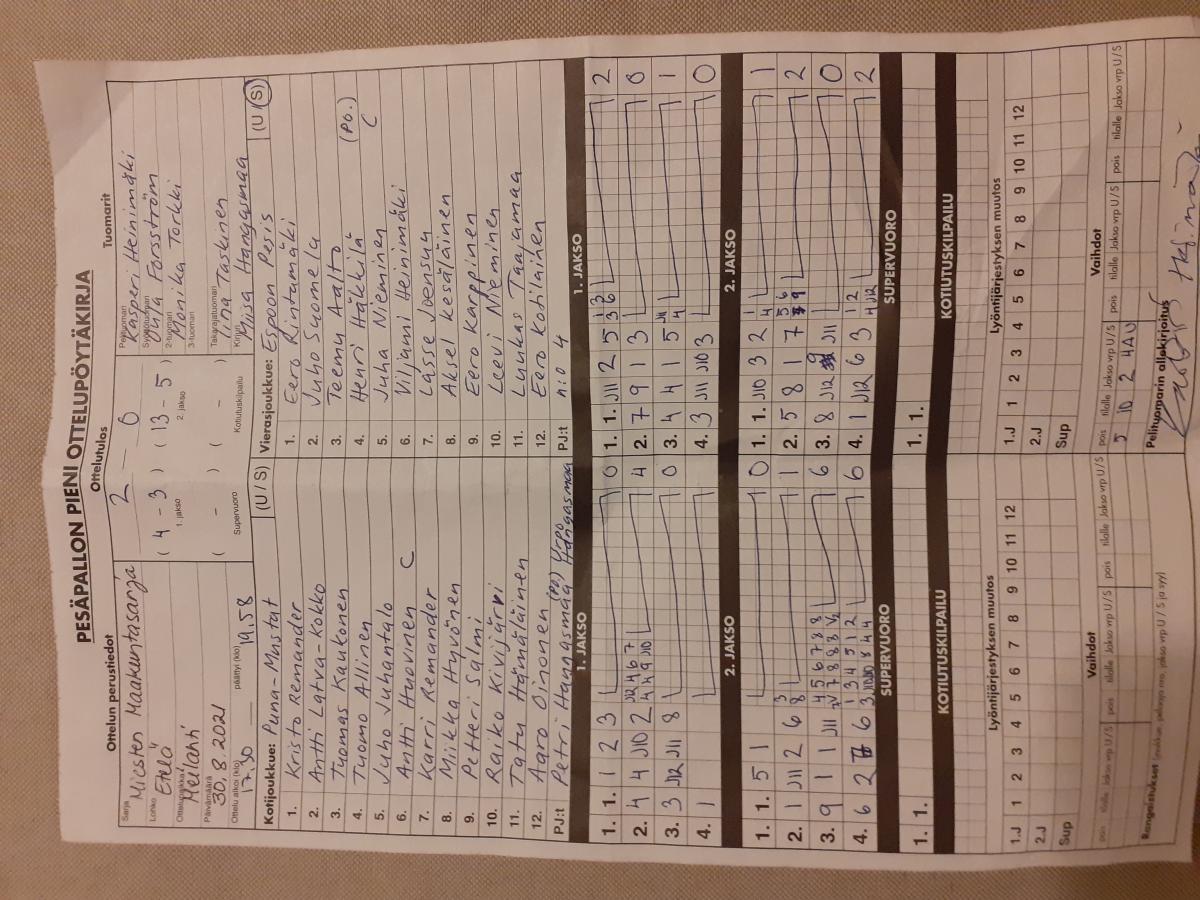 PESÄPALLON PIENI OTTELUPÖYTÄKIRJA
Ottelun perustiedot
Sarja Miesten Maakuntasarja
Lohko Etelä
Ottelupaikka Meilahti
Päivämäärä 30.8.2021
Ottelu alkoi (klo) 17.30 päättyi (klo) 19.58
Ottelutulos
2 – 0
( 4 – 3 ) ( 13 – 5 )
1. jakso 2. jakso
( – ) ( – )
Supervuoro Kotiutuskilpailu
Tuomarit
Pelituomari Kasperi Heinimäki
Syöttötuomari Jyla Forsström
2-tuomari Monika Torkki
3-tuomari
Takarajatuomari Tiina Taskinen
Kirjuri Miisa Hangasmaa
Kotijoukkue: Puna-Mustat (U / S)
1. Kristo Remander
2. Antti Latva-Kokko
3. Tuomas Kaukonen
4. Tuomo Allinen
5. Juho Juhantalo
6. Antti Huovinen C
7. Karri Remander
8. Miikka Hyvönen
9. Petteri Salmi
10. Raiko Krivijärvi
11. Tatu Hämäläinen
12. Aaro Oinonen
PJ:t Petri Hangasmaa (PO.) Urpo Hangasmaa
Vierasjoukkue: Espoon Pesis (U / S)
1. Eero Rintamäki
2. Juho Suomela
3. Teemu Aalto
4. Henri Häkkilä (PO.)
5. Juha Nieminen C
6. Viljami Heinimäki
7. Lasse Joensuu
8. Aksel Kesäläinen
9. Eero Karppinen
10. Leevi Nieminen
11. Luukas Taajamaa
12. Eero Kotilainen
PJ:t n:o 4
1. JAKSO
1. 1. 1 2 3 0
2. 4 4 J10 2 4
3. 3 J12 J11 8 0
4. 1
1. JAKSO
1. 1. J11 2 5 2
2. 7 9 1 3 0
3. 4 4 1 5 1
4. 3 J11 J10 3 0
2. JAKSO
1. 1. 5 1 0
2. 1 J11 2 6 1
3. 9 1 1 J11 6
4. 6 2 6 6
2. JAKSO
1. 1. J10 3 2 1
2. 5 8 1 7 2
3. 8 J12 J11 0
4. 1 J12 6 3 2
SUPERVUORO
1. 1.
SUPERVUORO
1. 1.
KOTIUTUSKILPAILU
KOTIUTUSKILPAILU
Lyöntijärjestyksen muutos
1.J 1 2 3 4 5 6 7 8 9 10 11 12
2.J
Sup
Lyöntijärjestyksen muutos
1.J 1 2 3 4 5 6 7 8 9 10 11 12
2.J
Sup
Vaihdot
pois tilalle Jakso vrp U / S pois tilalle Jakso vrp U / S pois tilalle Jakso vrp U / S
Vaihdot
pois tilalle Jakso vrp U / S pois tilalle Jakso vrp U / S pois tilalle Jakso vrp U / S
5 10 2 4AU
Rangaistukset (joukkue, pelaaja nro, jakso vrp U / S ja syy)
Pelituomarin allekirjoitus